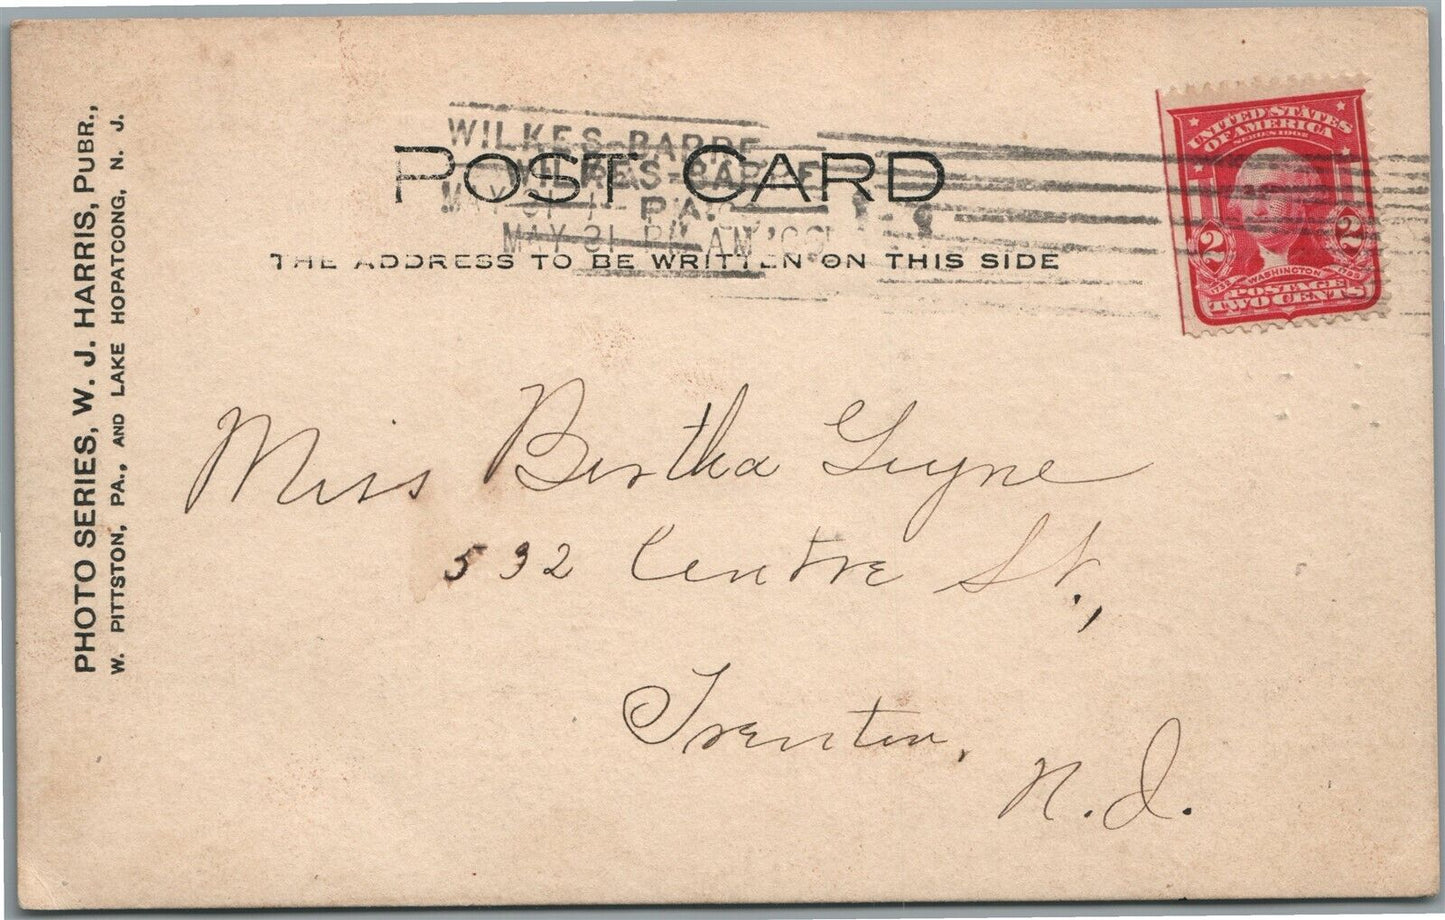 PHOTO SERIES, W. J. HARRIS, PUBR.,
W. PITTSTON, PA., AND LAKE HOPATCONG, N. J.
POST CARD
THE ADDRESS TO BE WRITTEN ON THIS SIDE
WILKES-BARRE
MAY 31
WILKES-BARRE
PA.
MAY 31 AM
UNITED STATES
OF AMERICA
SERIES 1902
2 2
1732 WASHINGTON 1799
POSTAGE
TWO CENTS
Miss Bertha Guyne
532 Centre St.,
Trenton,
N. J.